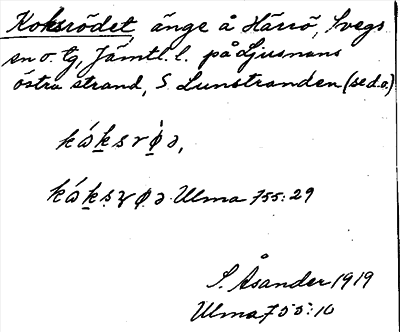 Koksrödet, änge å Härrö, Svegs
sn o. tg, Jämtl. l. på Ljusnans
östra strand, S. Lunstranden (se d.o.)
kåksrø̀ə,
kåksrø̀ə Ulma 755:29
S. Åsander 1919
Ulma 755:10